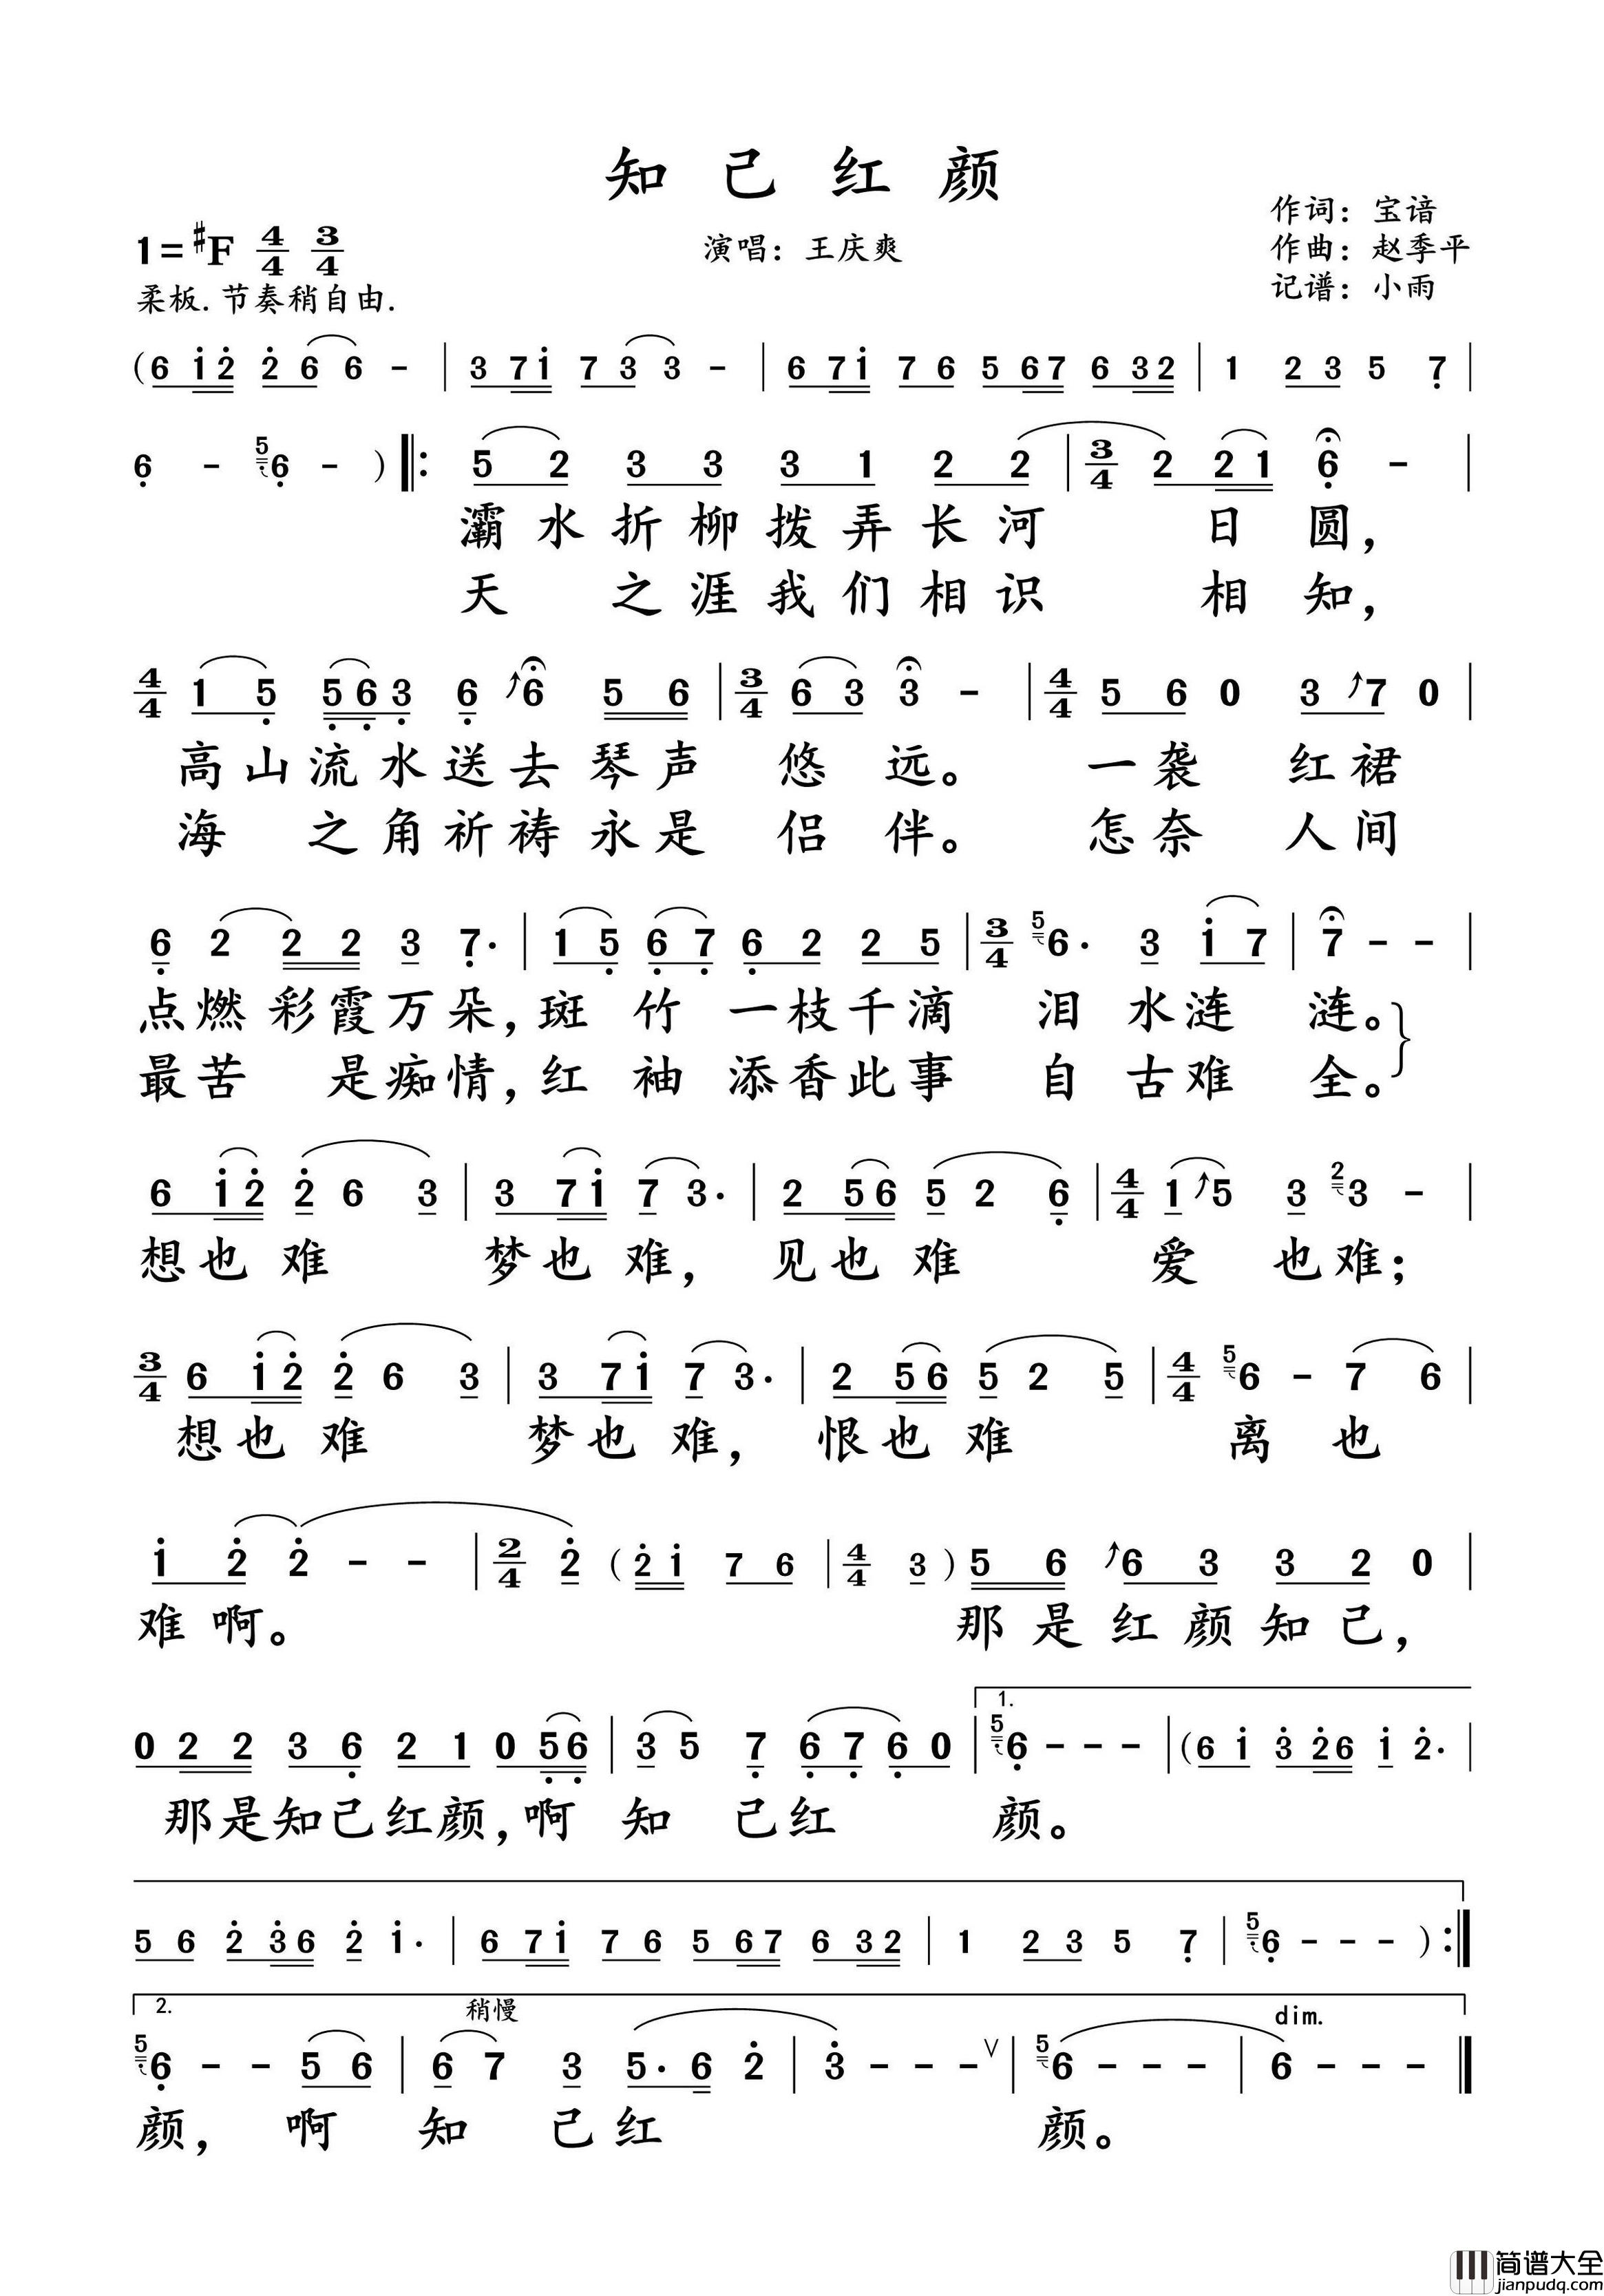 知己红颜
作词：宝谙
1=#F 4/4 3/4
演唱：王庆爽
作曲：赵季平
柔板.节奏稍自由.
记谱：小雨
(6 1 2 2 6 6 - | 3 7 1 7 3 3 - | 6 7 1 7 6 5 6 7 6 3 2 | 1 2 3 5 7 |
6 - 5 6 - ) ‖: 5 2 3 3 3 1 2 2 | 3/4 2 2 1 6 - |
灞水折柳拨弄长河 日圆，
天 之涯我们相识 相知，
4/4 1 5 5 6 3 6 6 5 6 | 3/4 6 3 3 - | 4/4 5 6 0 3 7 0 |
高山流水送去琴声 悠 远。 一袭 红裙
海 之角祈祷永是 侣 伴。 怎奈 人间
6 2 2 2 3 7. | 1 5 6 7 6 2 2 5 | 3/4 5 6. 3 1 7 | 7 - - |
点燃彩霞万朵，斑竹一枝千滴 泪水涟 涟。
最苦 是痴情，红袖添香此事 自古难 全。
6 1 2 2 6 3 | 3 7 1 7 3. | 2 5 6 5 2 6 | 4/4 1 5 3 2 3 - |
想也难 梦也难，见也难 爱 也难；
3/4 6 1 2 2 6 3 | 3 7 1 7 3. | 2 5 6 5 2 5 | 4/4 5 6 - 7 6 |
想也难 梦也难，恨也难 离 也
1 2 2 - - | 2/4 2 (2 1 7 6 | 4/4 3 ) 5 6 6 3 3 2 0 |
难啊。 那是红颜知己，
1.
0 2 2 3 6 2 1 0 5 6 | 3 5 7 6 7 6 0 | 5 6 - - - | (6 1 3 2 6 1 2. |
那是知己红颜，啊 知 己红 颜。
5 6 2 3 6 2 1. | 6 7 1 7 6 5 6 7 6 3 2 | 1 2 3 5 7 | 5 6 - - - ) :‖
2. 稍慢 dim.
5 6 - - 5 6 | 6 7 3 5. 6 2 | 3 - - - V | 5 6 - - - | 6 - - - ‖
颜， 啊 知 己红 颜。
简谱大全
jianpudq.com